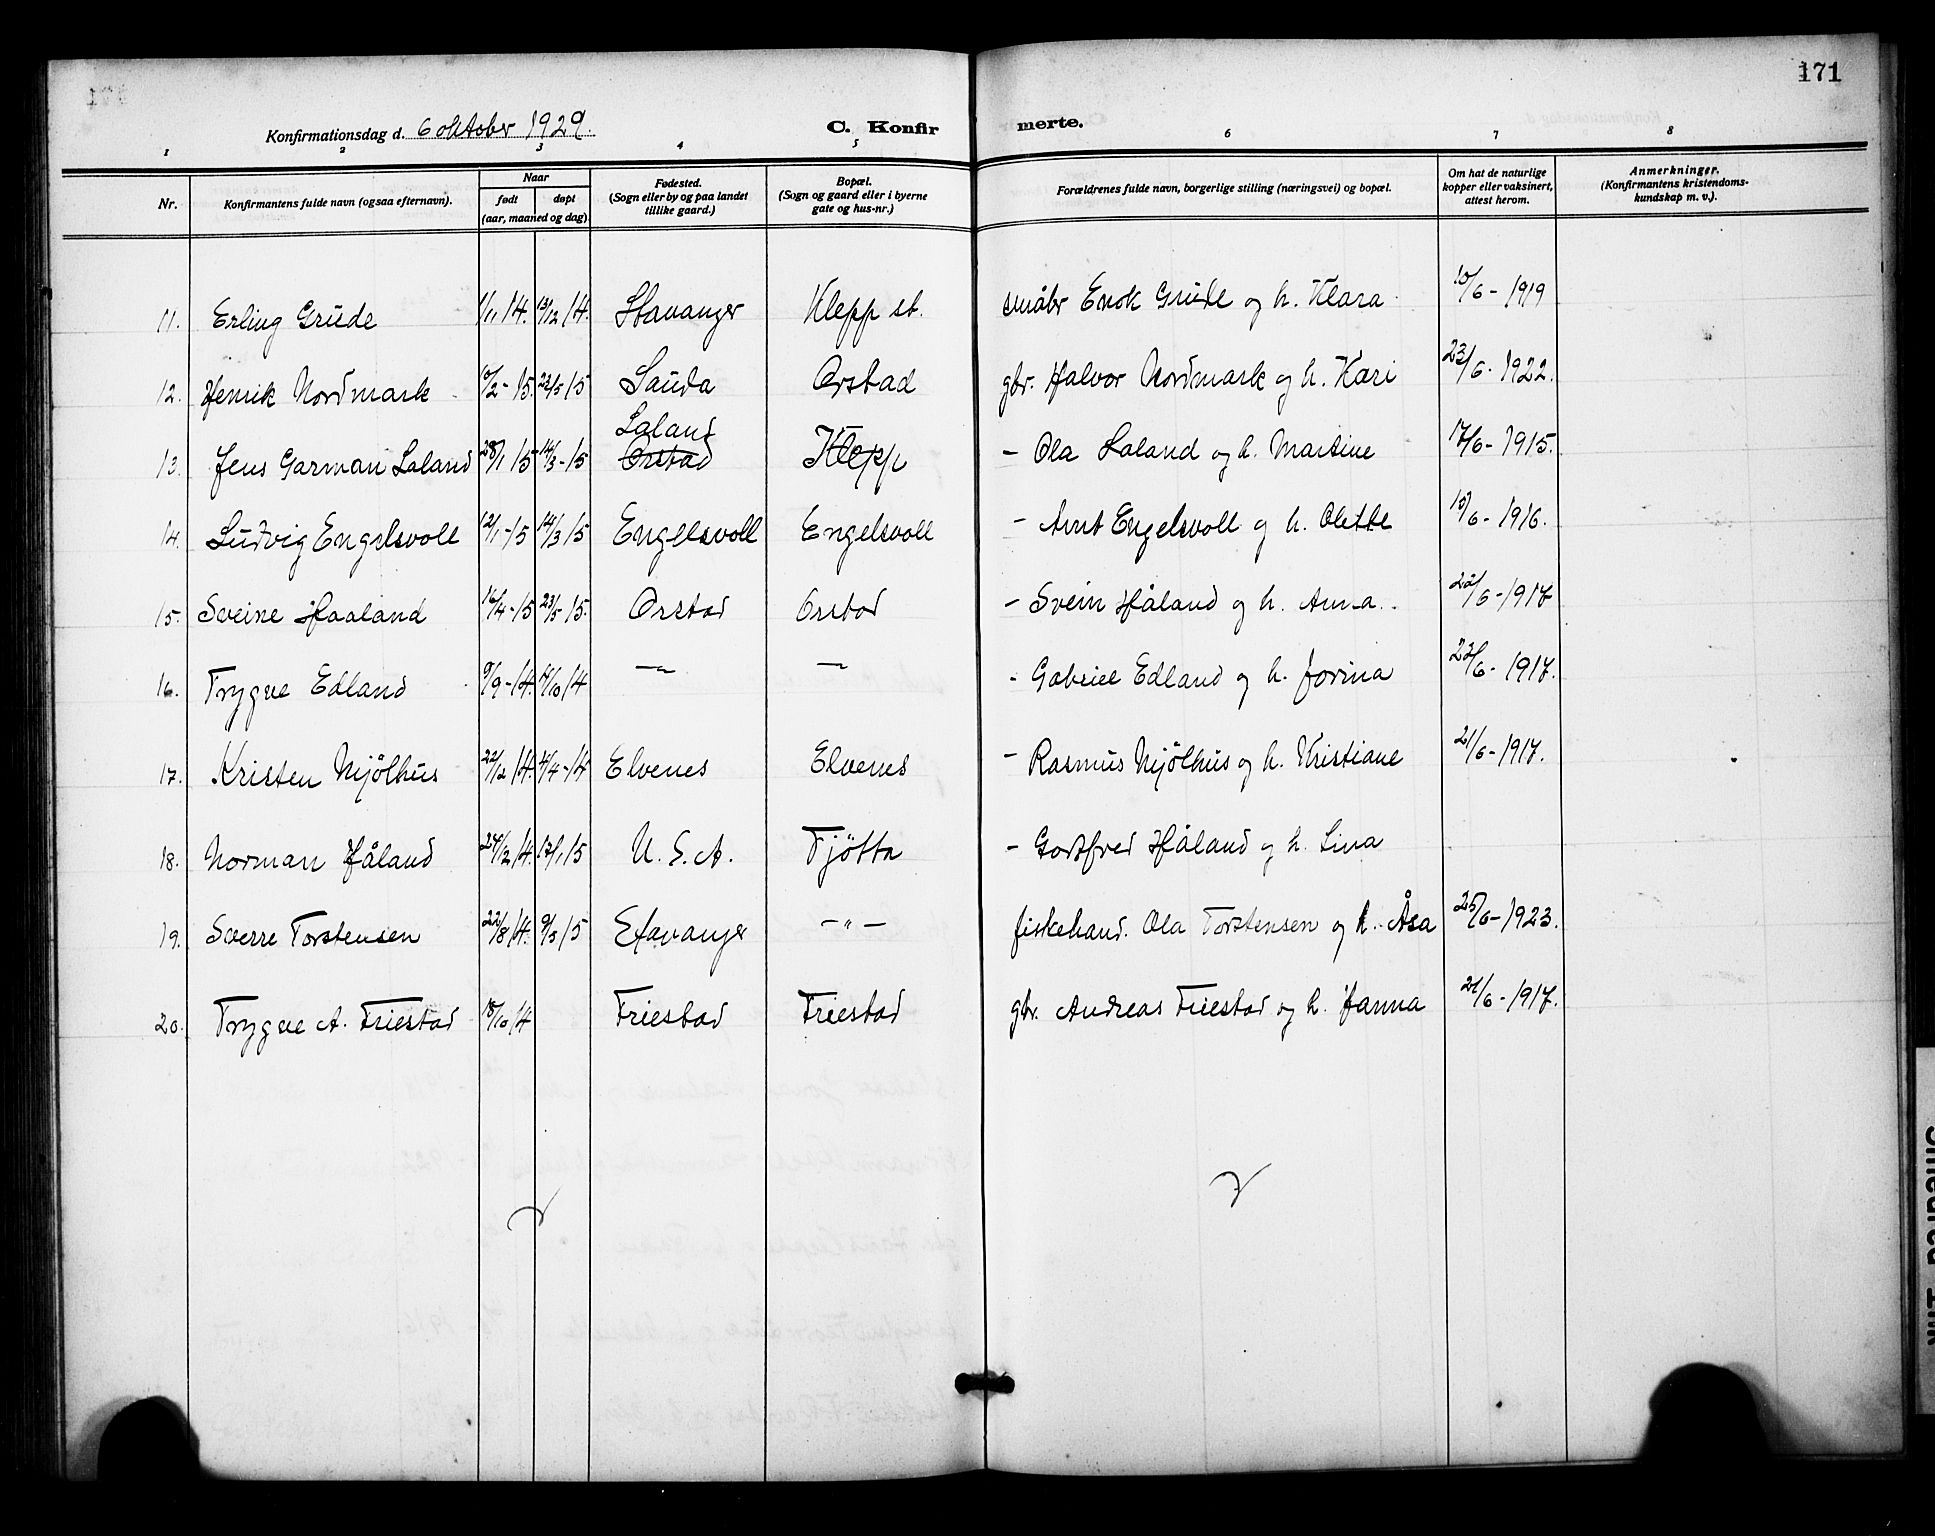 171
Konfirmationsdag d. 6 oktober 1929.
C. Konfirmerte.
1 2 3 4 5 6 7 8
Nr. | Konfirmantens fulde navn (ogsaa efternavn). | Naar født døpt (aar, maaned og dag). | Fødested. (Sogn eller by og paa landet tillike gaard.) | Bopæl. (Sogn og gaard eller i byerne gate og hus-nr.) | Forældrenes fulde navn, borgerlige stilling (næringsvei) og bopæl. | Om hat de naturlige kopper eller vaksinert, attest herom. | Anmerkninger. (Konfirmantens kristendomskundskap m. v.).
11. Erling Grude 1/11 14. 13/12 14. Stavanger Klepp st. småbr Enok Grude og h. Klara 10/6 - 1919
12. Henrik Nordmark 10/2 - 15. 23/5 15 Sauda Orstad gbr. Halvor Nordmark og h. Kari 23/6 - 1922.
Laland
13. Jens Garman Laland 28/1 15 14/3 - 15 Orstad Klepp - Ola Laland og h. Martine 17/6 - 1915.
14. Ludvig Engelsvoll 12/1 - 15 14/3 15 Engelsvoll Engelsvoll - Arnt Engelsvoll og h. Olette 15/6 - 1916.
15. Sveine Haaland 16/4 - 15 23/5 15. Orstad Orstad - Svein Håland og h. Anna. 22/6 - 1917
16. Trygve Edland 9/9 - 14. 4/10 14 -"- - - Gabriel Edland og h. Jorina 22/6 - 1917.
17. Kristen Njølhus 22/12 14. 4/4 - 14 Elvenes Elvenes - Rasmus Njølhus og h. Kristiane 21/6 - 1917.
18. Norman Håland 24/12 14. 17/1 15 U. S. A. Tjøtta - Gottfred Håland og h. Lina
19. Sverre Torstensen 22/8 14. 9/5 15 Stavanger -"- fiskehand. Ola Torstensen og h. Åsa 25/6 - 1923.
20. Trygve A. Friestad 18/10 14 Friestad Friestad gbr. Andreas Friestad og h. Janna 21/6 - 1917.